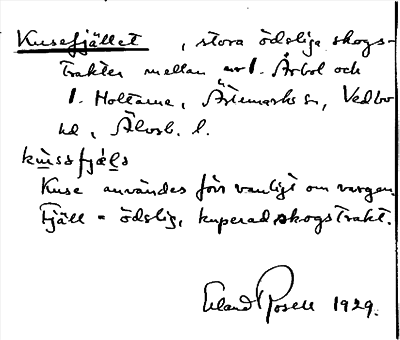 Kusefjället, stora ödsliga skogs-
trakter mellan 1. Årbol och
1. Holtarna, Ärtemarks sn, Vedbo
hd, Älvsb. l.
kus̲sfjäl̲s
Kuse användes förr vanligt om vargen.
Fjäll = ödslig, kuperad skogstrakt.
Erland Rosell 1929.